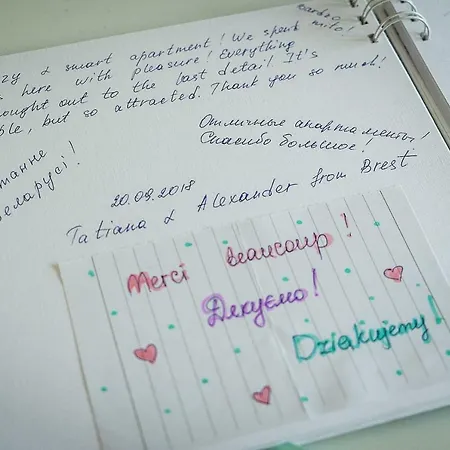 zy & smart apartment! We spent
here with pleasure! Everything
ought out to the last detail. It's
ble, but so attracted. Thank you so much!
Отличные апартаменты!
Спасибо большое!
20.09.2018
Tatiana & Alexander from Brest
Merci beaucoup!
Дякуємо!
Dziękujemy!